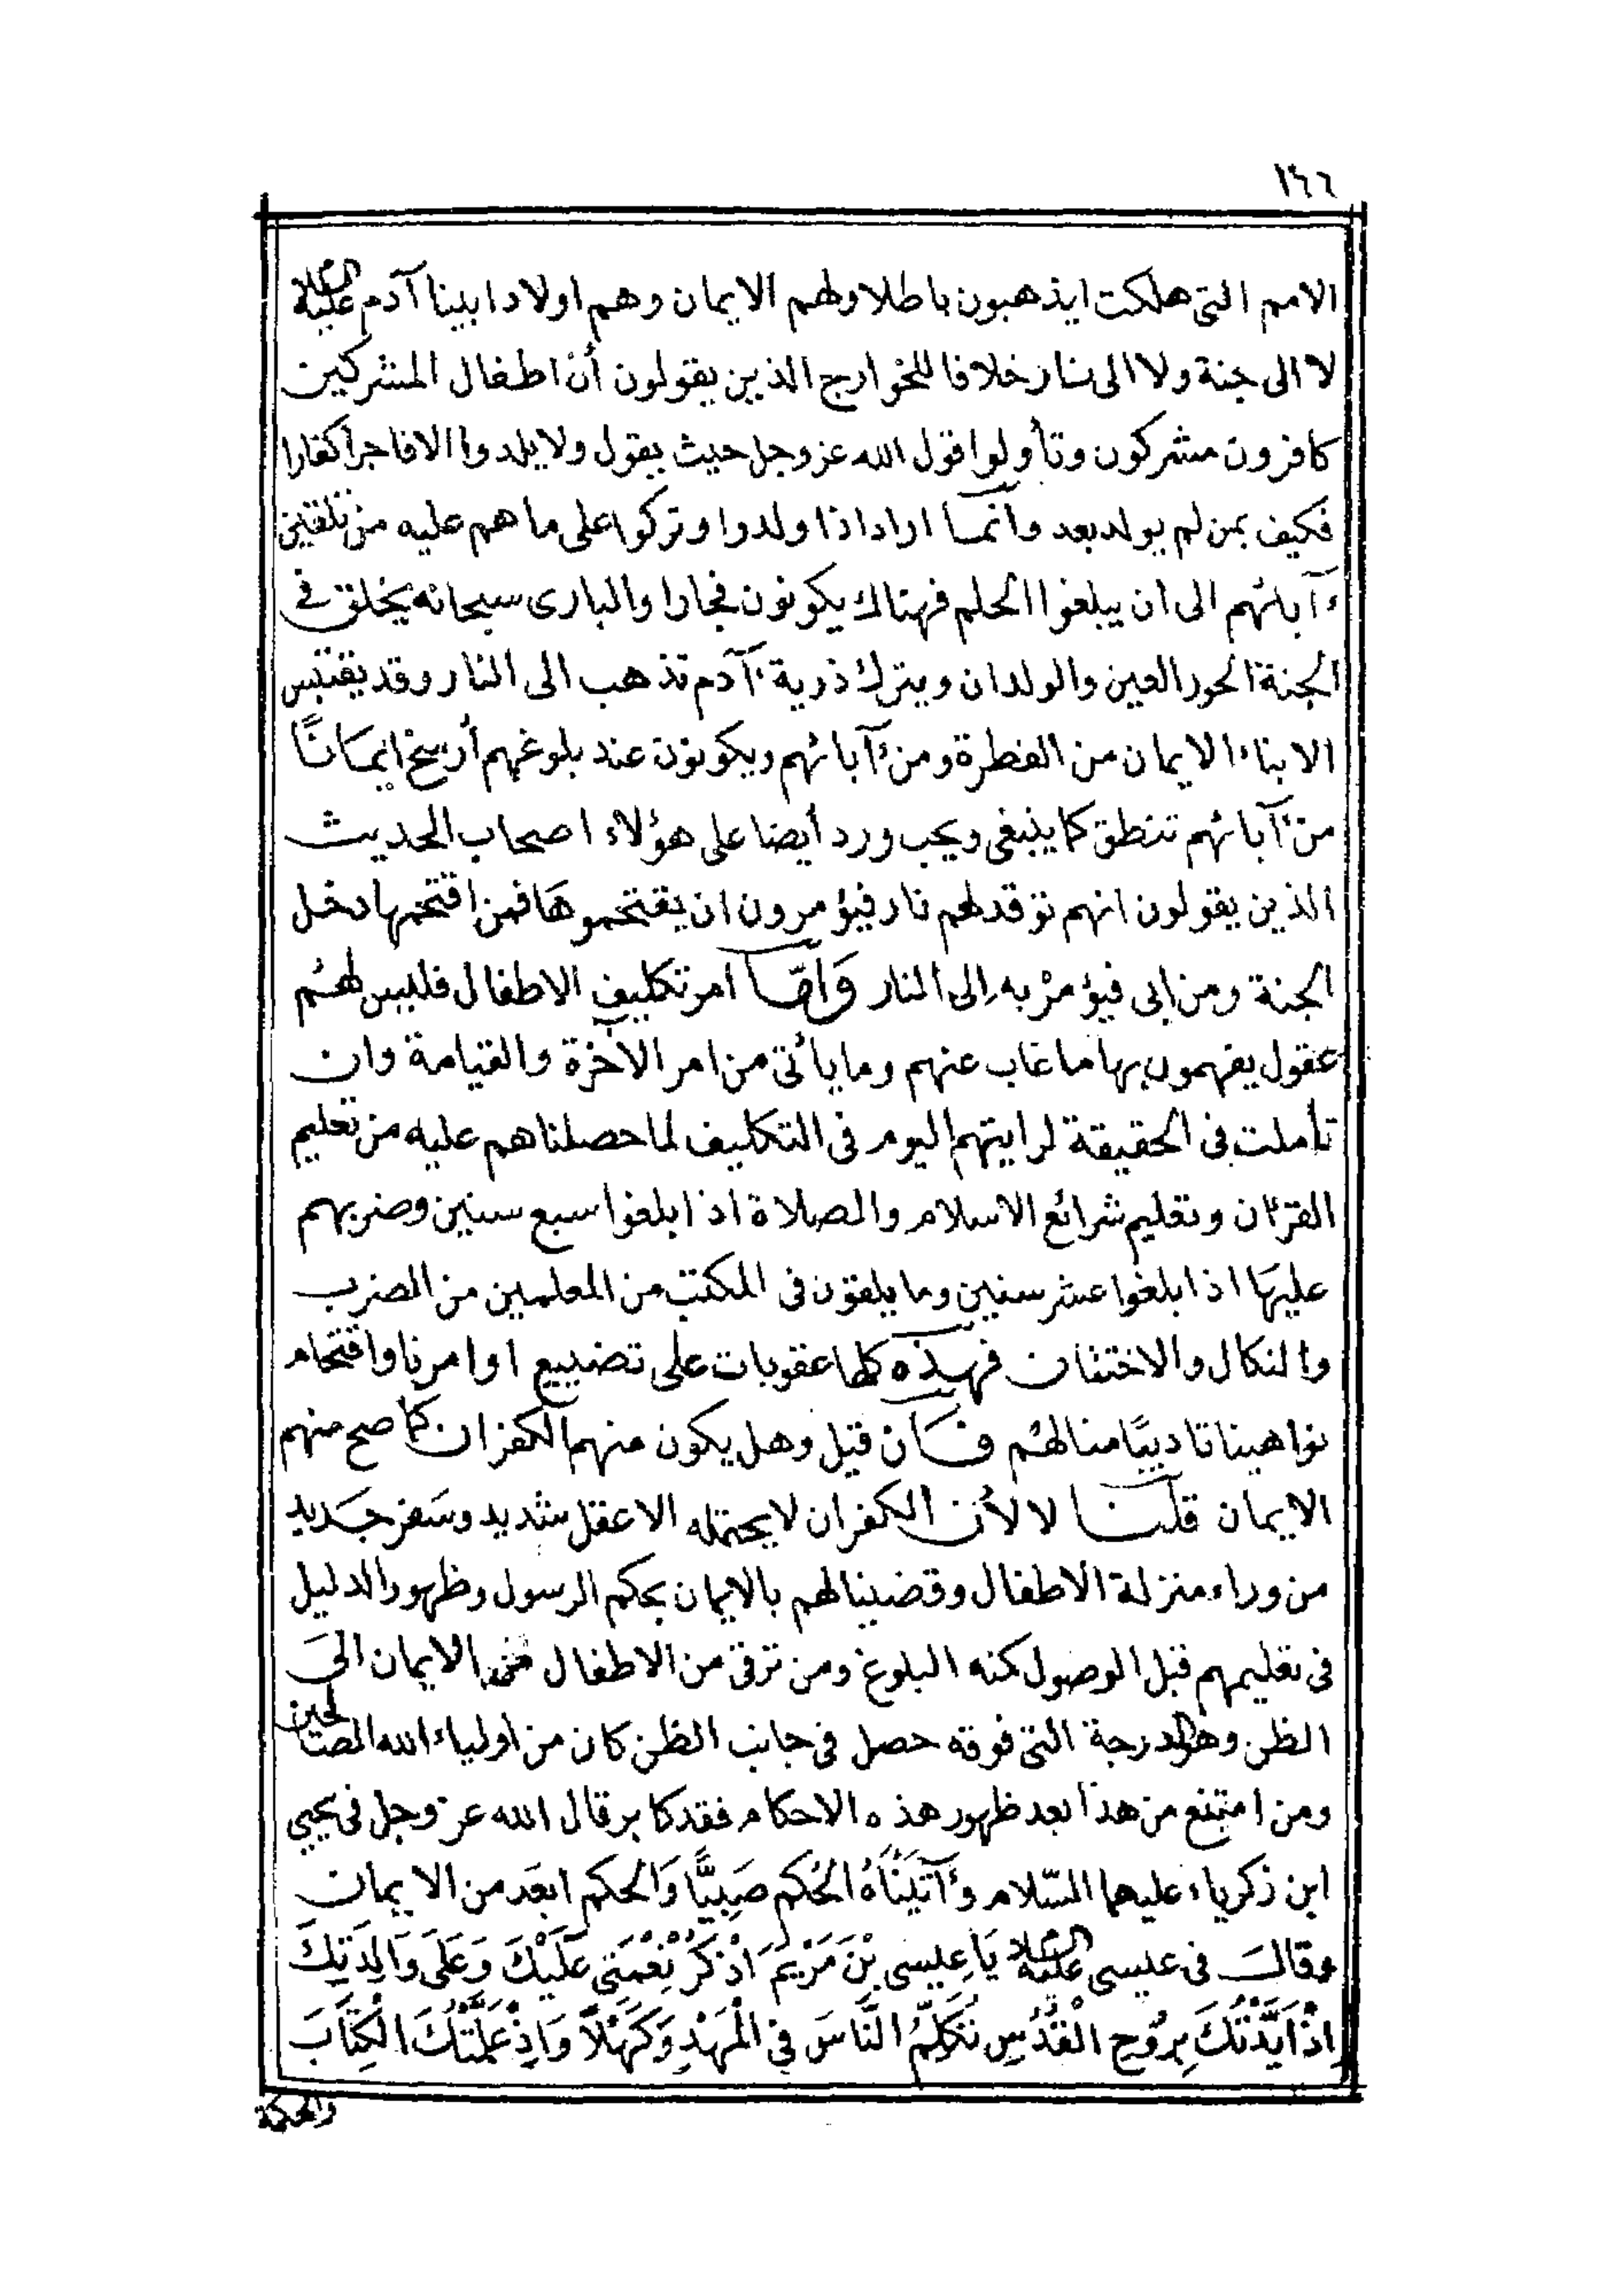 ١٦٦
الامم التى هلكت ايذهبون باطلا ولهم الايمان وهم اولاد ابينا آدم عليه السلام
لا الى جنة ولا الى نار خلافا للخوارج الذين يقولون أن اطفال المشركين
كافرون مشركون وتأولوا قول الله عز وجل حيث يقول ولا يلدوا الا فاجرا كفارا
فكيف بمن لم يولد بعد وانما اراد اذا ولدوا وتركوا على ما هم عليه من تلقين
ءآبائهم الى ان يبلغوا الحلم فهناك يكونون فجارا والبارى سبحانه يخلق فى
الجنة الحور العين والولدان ويترك ذرية ءآدم تذهب الى النار وقد يقتبس
الابناء الايمان من الفطرة ومن ءآبائهم ويكونون عند بلوغهم أرسخ ايمانًا
من ءآبائهم تنطق كما ينبغى ويجب ورد أيضا على هؤلاء اصحاب الحديث
الذين يقولون انهم توقد لهم نار فيؤمرون ان يقتحموها فمن اقتحمها دخل
الجنة ومن ابى فيؤمر به الى النار وَأمّا امر تكليف الاطفال فليس لهم
عقول يفهمون بها ما غاب عنهم وما يأتى من امر الآخرة والقيامة وان
تأملت فى الحقيقة لرايتهم اليوم فى التكليف لما حصلناهم عليه من تعليم
القرءان وتعليم شرائع الاسلام والصلاة اذا بلغوا سبع سنين وضربهم
عليها اذا بلغوا عشر سنين وما يلقون فى المكتب من المعلمين من الضرب
والنكال والاختتان فهذه كلها عقوبات على تضييع اوامرنا واقتحام
نواهينا تاديبًا منا لهم فان قيل وهل يكون منهم الكفران كما صح منهم
الايمان قلنا لا لأن الكفران لا يحتمله الا عقل شديد وسَفر جديد
من وراء منزلة الاطفال وقضينا لهم بالايمان بحكم الرسول وظهور الدليل
فى تعليمهم قبل الوصول كنه البلوغ ومن ترقى من الاطفال من الايمان الىَ
الظن وهو الدرجة التى فوقه حصل فى جانب الظن كان من اولياء الله الصالحين
ومن امتنع من هذا بعد ظهور هذه الاحكام فقد كابر قال الله عز وجل فى يحيي
ابن زكرياء عليهما السّلام وَءآتَيْنَاهُ الْحُكم صَبِيًّا وَالحكم ابعَد من الايمان
وقالَ فى عيسى عليه السلام يَا عِيسى بْنَ مَرْيَمَ اذْكُرْ نِعْمَتِى عَلَيْكَ وَعَلَى وَالِدَتِكَ
اذْ اَيَّدْتُكَ بِرُوحِ الْقُدُسِ تُكَلِّمُ النَّاسَ فِى الْمَهْدِ وَكَهْلًا وَاِذْ عَلَّمْتُكَ الْكِتَابَ
والحكمة